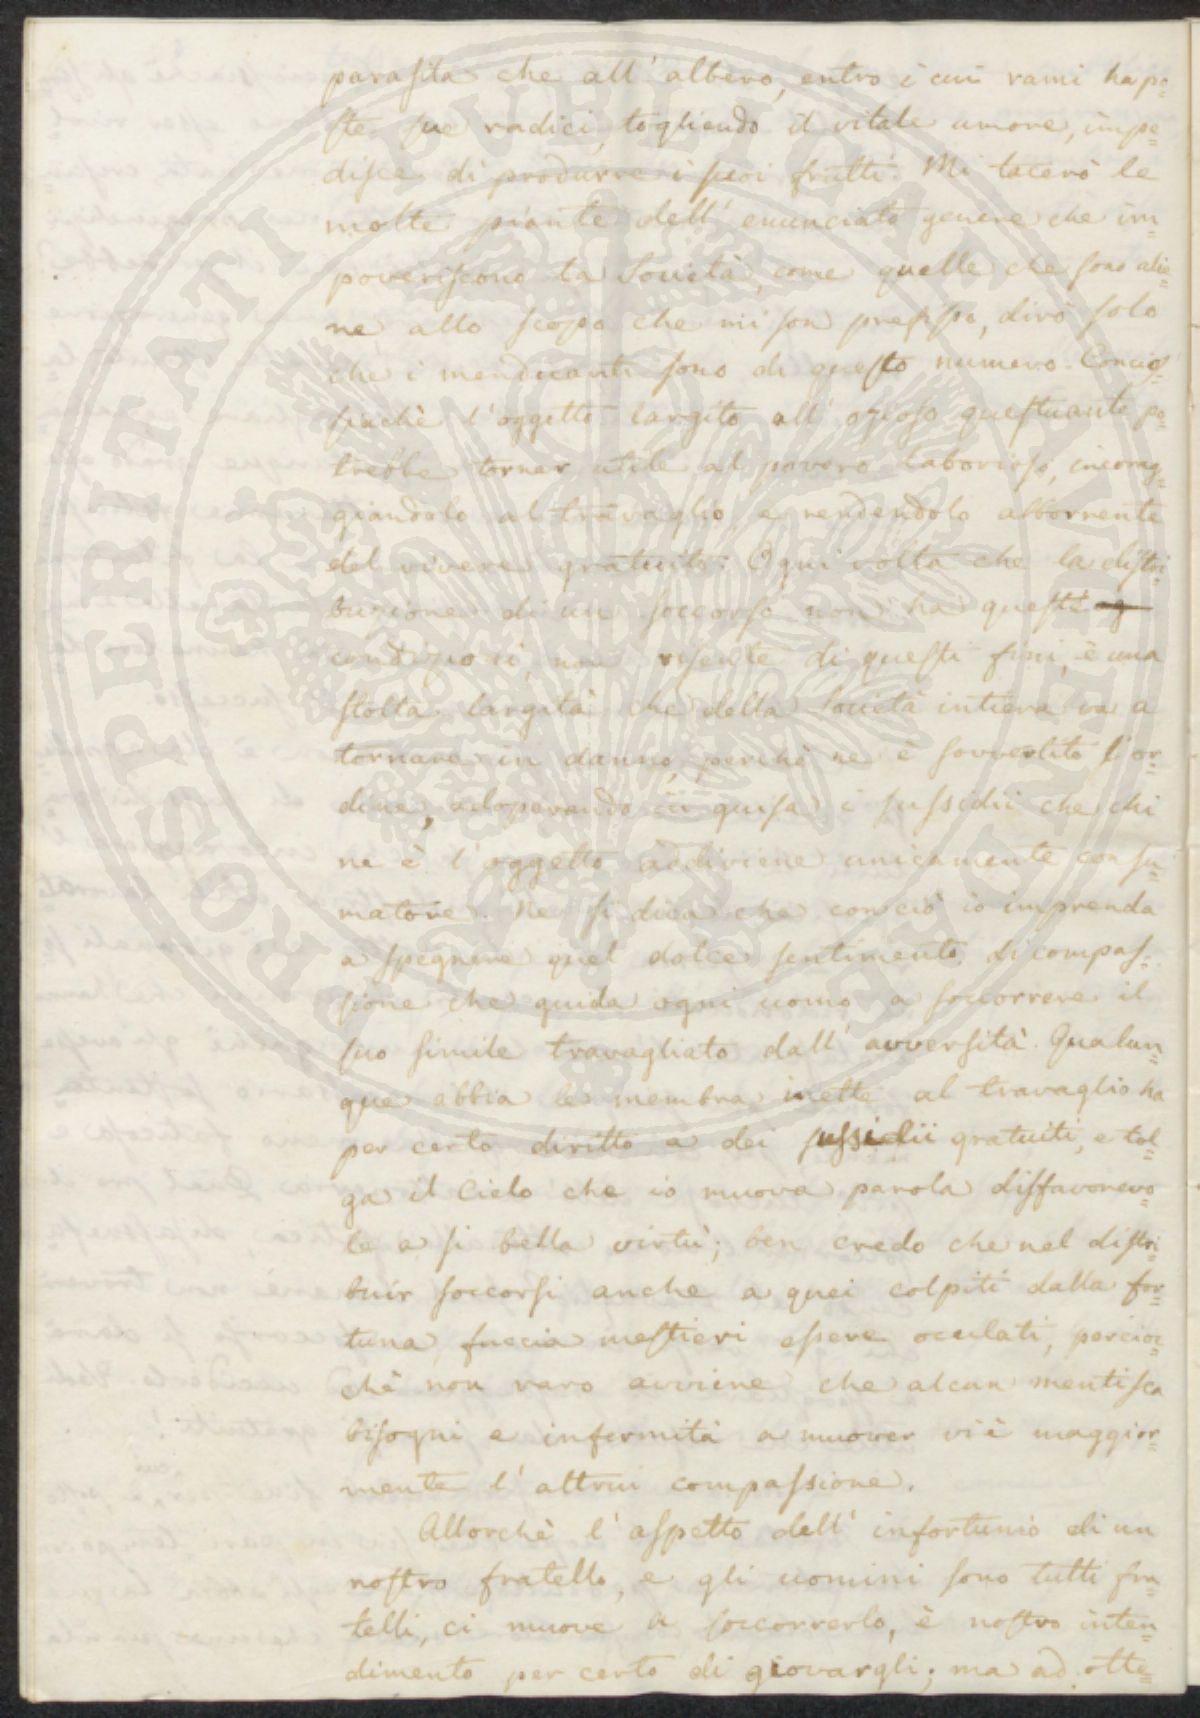 parasita che all' albero, entro i cui rami ha po=
ste sue radici, togliendo il vitale umore, impe=
disce di produrre i suoi frutti. Mi tacerò le
molte piante dell' enunciato genere che im=
poveriscono la Società, come quelle che sono alie=
ne allo scopo che mi son prefisso, dirò solo
che i mendicanti sono di questo numero. Concios=
siachè l'oggetto largito all' ozioso questuante po=
trebbe tornar utile al povero laborioso, incorag=
giandolo al travaglio, e rendendolo abborrente
del vivere gratuito. Ogni volta che la distri=
buzione di un soccorso non ha queste
condizioni, non risente di questi fini, è una
stolta largità che della Società intiera va a
tornare in danno, perchè ne è sovvertito l'or=
dine, adoperando in guisa i sussidii che chi
ne è l'oggetto addiviene unicamente consu=
matore. Ne si dica che con ciò io imprenda
a spegnere quel dolce sentimento di compas=
sione che guida ogni uomo a soccorrere il
suo simile travagliato dall' avversità. Qualun=
que abbia le membra inette al travaglio ha
per certo diritto a dei sussidii gratuiti, e tol=
ga il Cielo che io muova parola disfavorevo=
le a si bella virtù; ben credo che nel distri=
buir soccorsi anche a quei colpiti dalla for=
tuna, faccia mestieri essere oculati, percioc=
chè non raro avviene che alcun mentisca
bisogni e infermità a muover viè maggior=
mente l'altrui compassione.
Allorchè l'aspetto dell' infortunio di un
nostro fratello, e gli uomini sono tutti fra=
telli, ci muove a soccorrerlo, è nostro inten=
dimento per certo di giovargli; ma ad otte=
PROSPERITATI PUBLICAE AUGENDAE